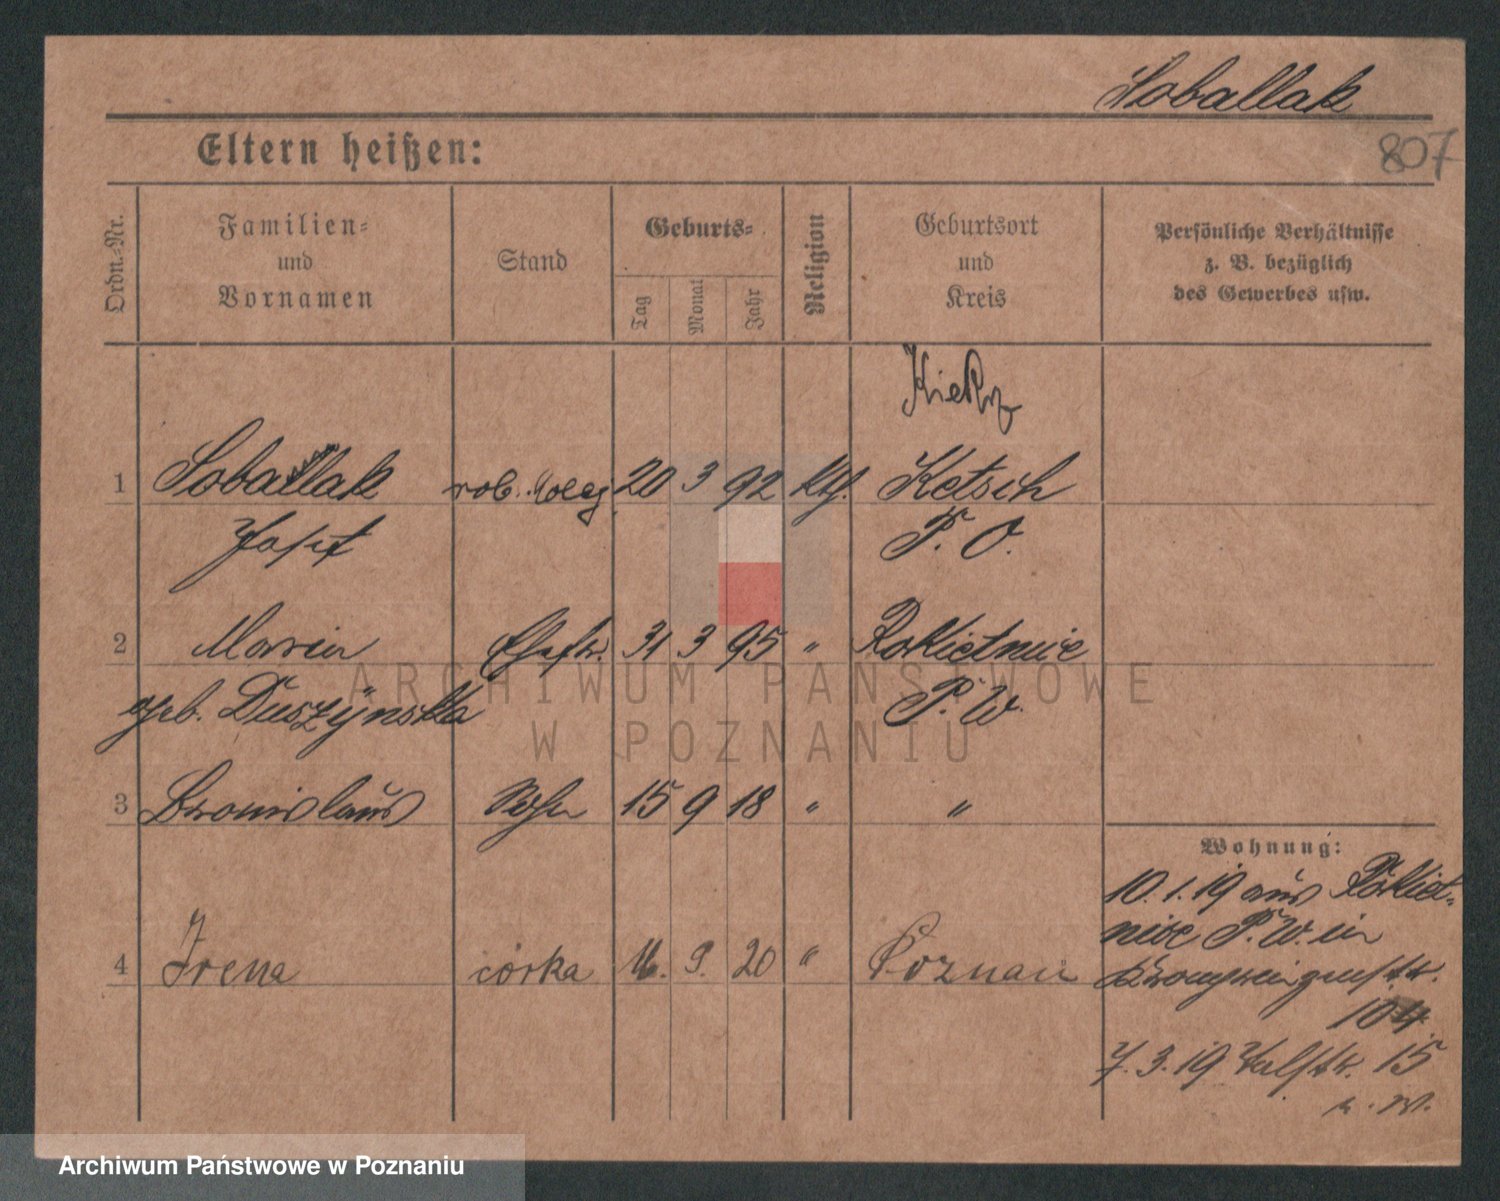 Soballak
807
Eltern heißen:
Ordn.-Nr.
Familien-
und
Vornamen
Stand
Geburts-
Tag
Monat
Jahr
Religion
Geburtsort
und
Kreis
Persönliche Verhältnisse
z. B. bezüglich
des Gewerbes usw.
Kiekrz
1 Soballak rob. 20 3 92 kth. Ketsch
Josef P. O.
2 Maria Ehefr. 31 3 95 " Rokietnice
geb. Duszÿnska P. W.
3 Bronislaus Sohn 15 9 18 " "
Wohnung:
10. 1. 19 aus Rokiet-
nice P. W. in
Kronprinzenstr.
104
7. 3. 19 Talstr. 15
4 Irena córka 9. 20 " Poznań
ARCHIWUM PAŃSTWOWE
W POZNANIU
Archiwum Państwowe w Poznaniu